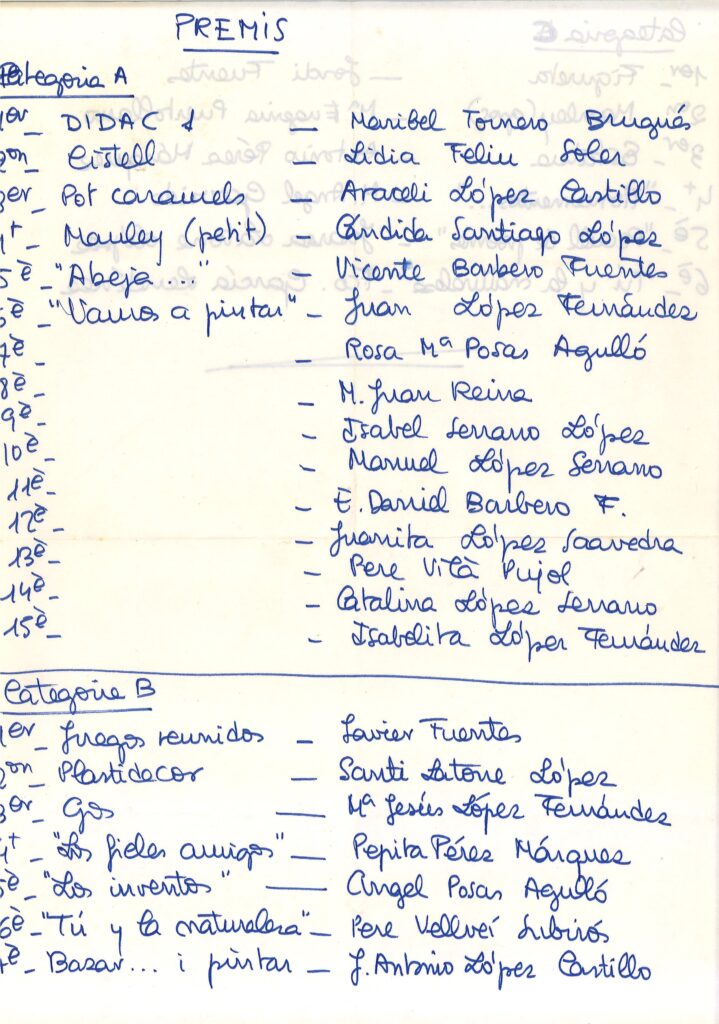 PREMIS
Categoria A
1er_ DIDAC 1 _ Maribel Tornero Brugués
2on_ Cistell _ Lidia Feliu Soler
3er_ Pot caramels _ Araceli López Castillo
4t_ Manley (petit) _ Cándida Santiago López
5è_ "Abeja ..." _ Vicente Barbero Fuentes
6è_ "Vamos a pintar" _ Juan López Fernández
7è_ _ Rosa Mª Posas Agulló
8è_ _ M. Juan Reina
9è_ _ Isabel Serrano López
10è_ _ Manuel López Serrano
11è_ _ E. Daniel Barbero F.
12è_ _ Juanita López Saavedra
13è_ _ Pere Vilà Pujol
14è_ _ Catalina López Serrano
15è_ _ Isabelita López Fernández
Categoria B
1er_ Juegos reunidos _ Javier Fuentes
2on_ Plastidecor _ Santi Latorre López
3er_ Gos _ Mª Jesús López Fernández
4t_ "Los fieles amigos" _ Pepita Pérez Márquez
5è_ "Los inventos" _ Angel Posas Agulló
6è_ "Tú y la naturaleza" _ Pere Vellveí Subirós
7è_ Bazar... i pintar _ J. Antonio López Castillo